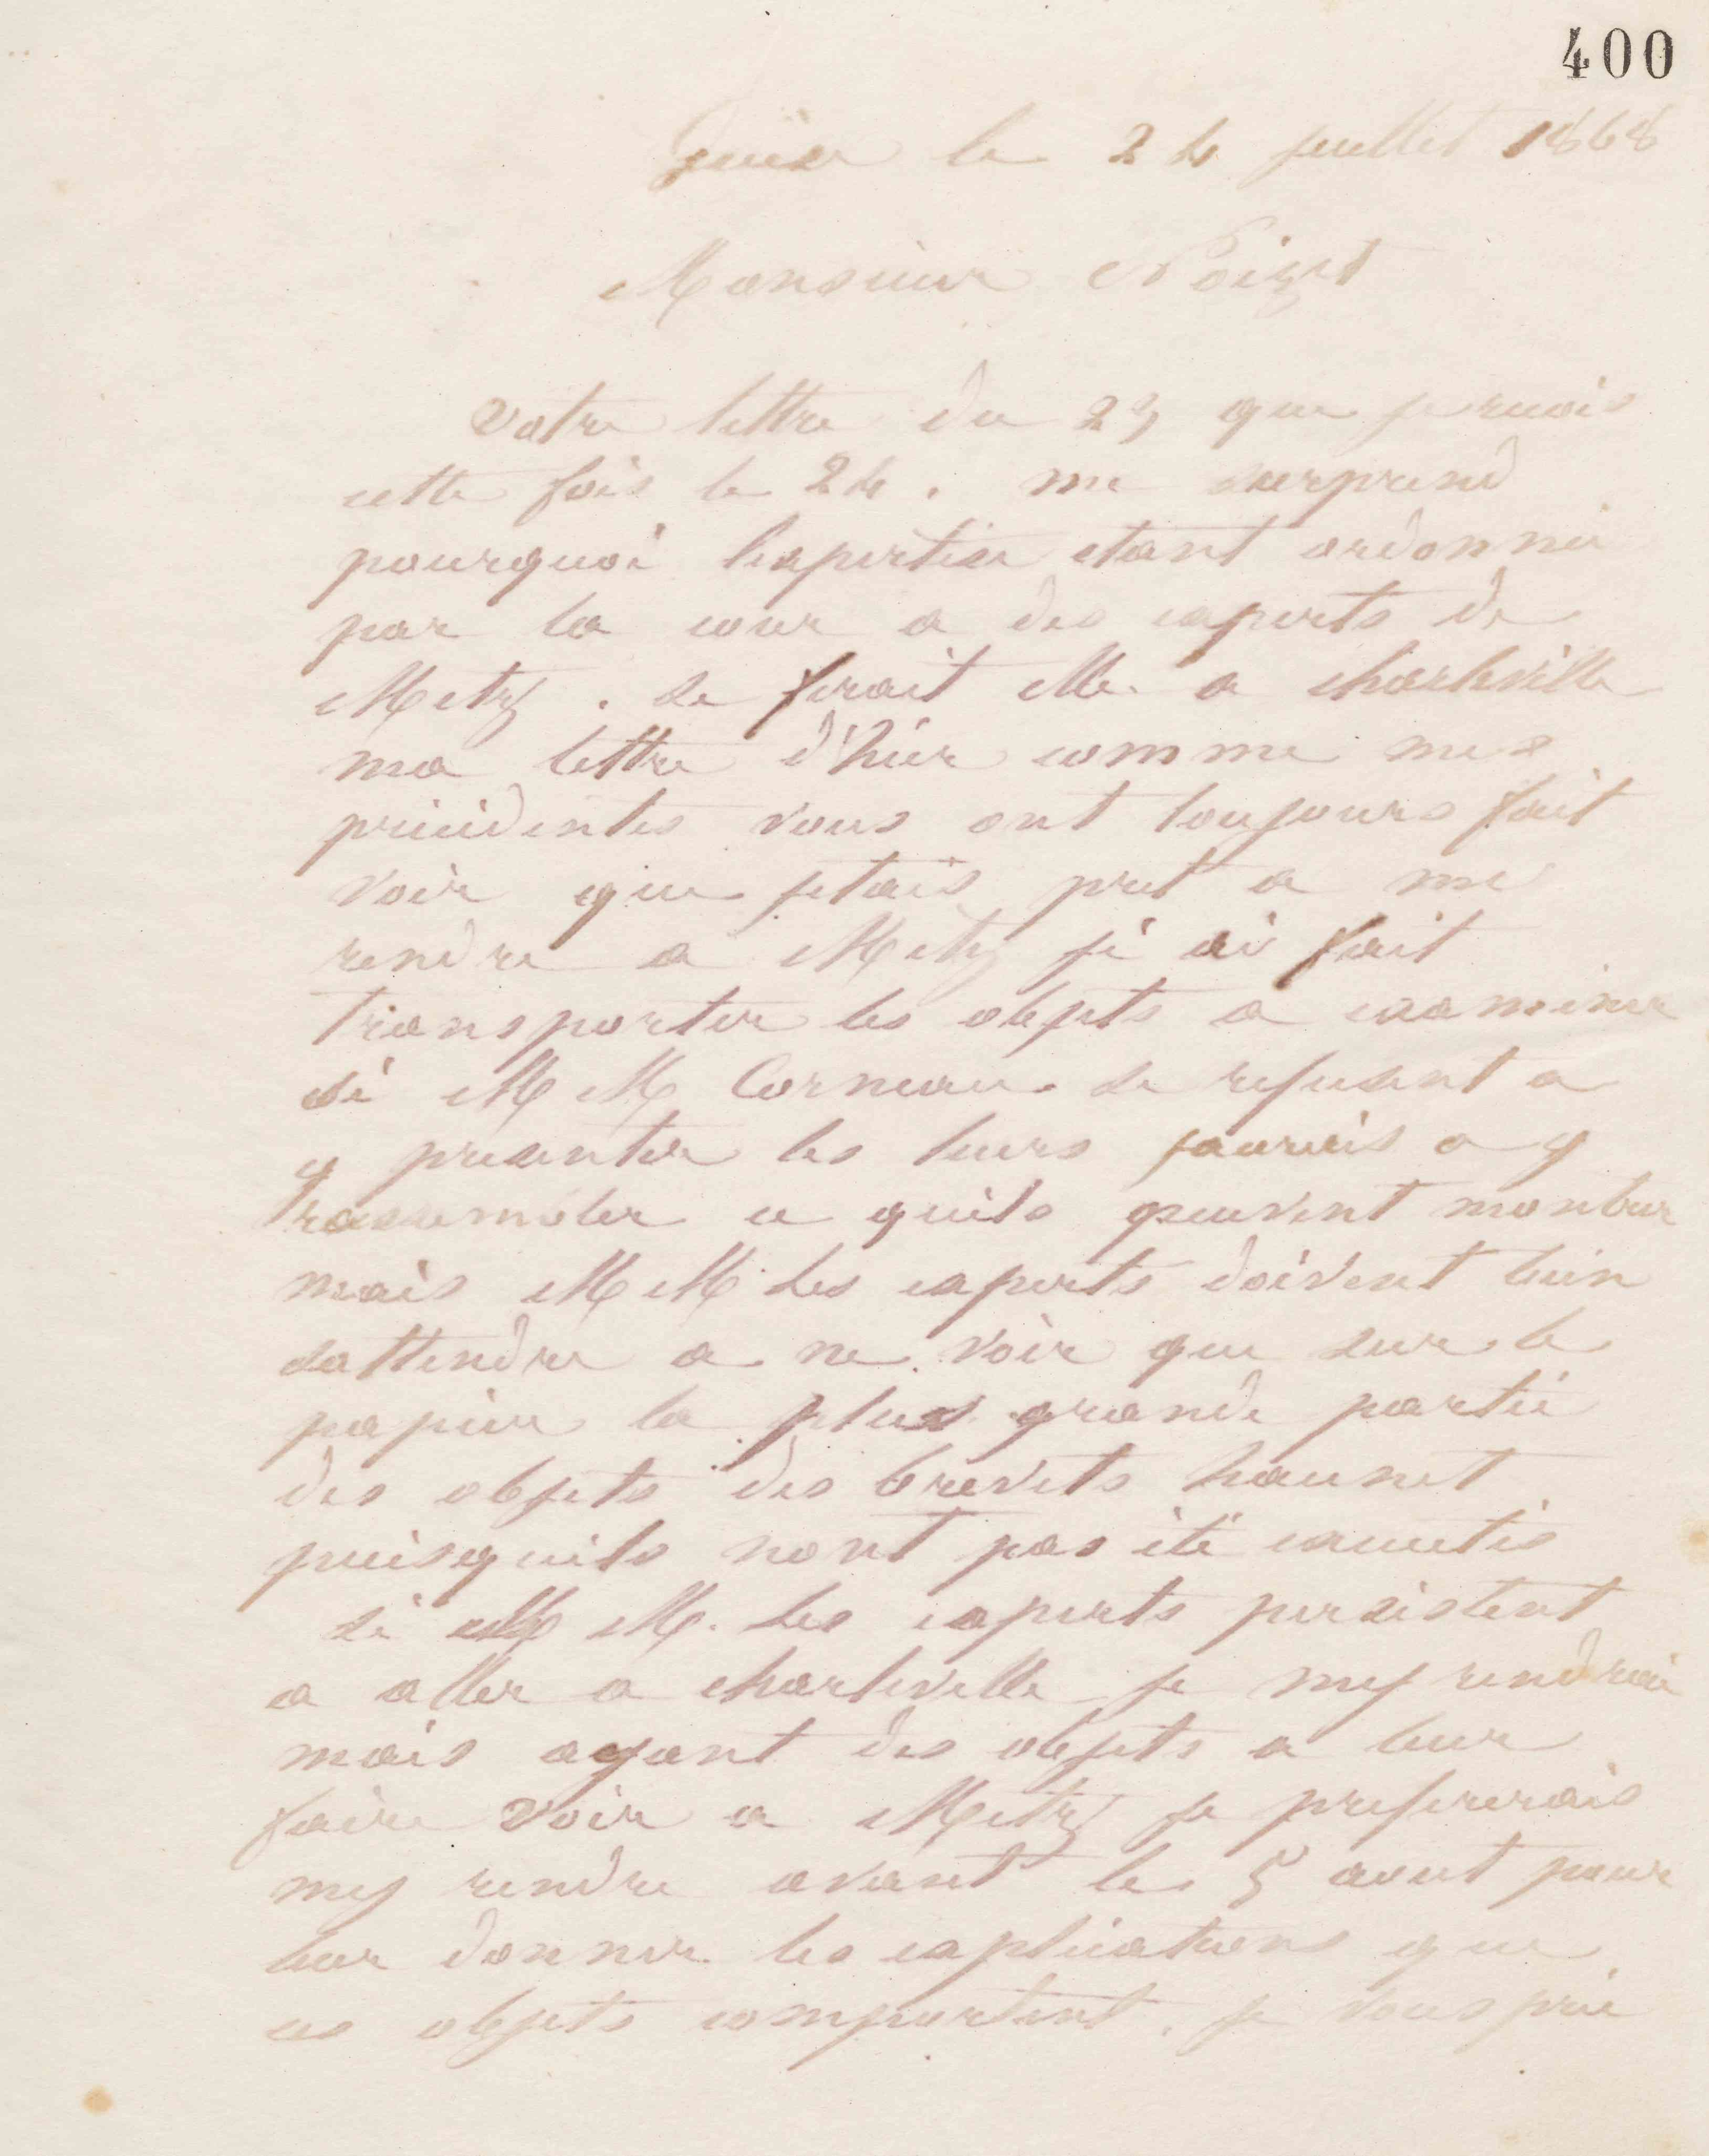 400
Guise le 24 juillet 1868
Monsieur Noizet
Votre lettre du 23 que je recois
cette fois le 24. me surprend
pourquoi lexpertise etant ordonnée
par la cour a des experts de
Metz. se ferait elle a charleville
ma lettre d'hier comme mes
précédentes vous ont toujours fait
voir que jetais pret a me
rendre a Metz j'i ai fait
transporter les objets a examiner
si MM Corneau se refusent a
y presenter les leurs jaurais a y
rassembler ce quils peuvent montrer
mais MM. les experts doivent bien
sattendre a ne voir que sur le
papier la plus grande partie
des objets des brevets haunet
puisquils nont pas été executés
si MM. les experts persistent
a aller a charleville je my rendrai
mais ayant des objets a leur
faire voir a Metz je prefererais
my rendre avant le 5 aout pour
leur donner les explications que
ces objets comportent. je vous prie